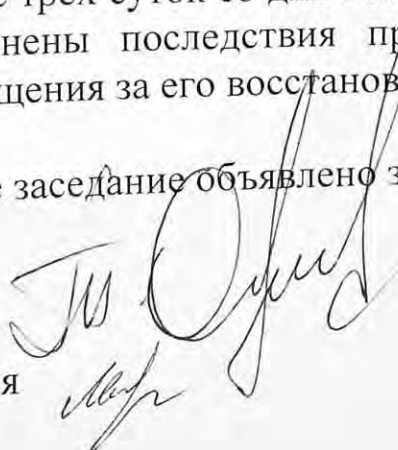 трех суток со д
нены последствия пр
щения за его восстанов
е заседание объявлено з
я